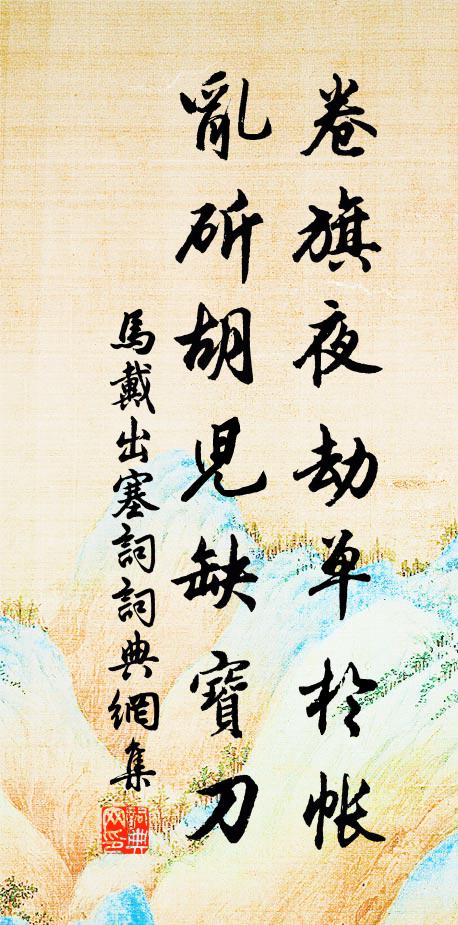 卷旗夜劫單於帳
亂斫胡兒缺寶刀
馬戴出塞詞詞典網集